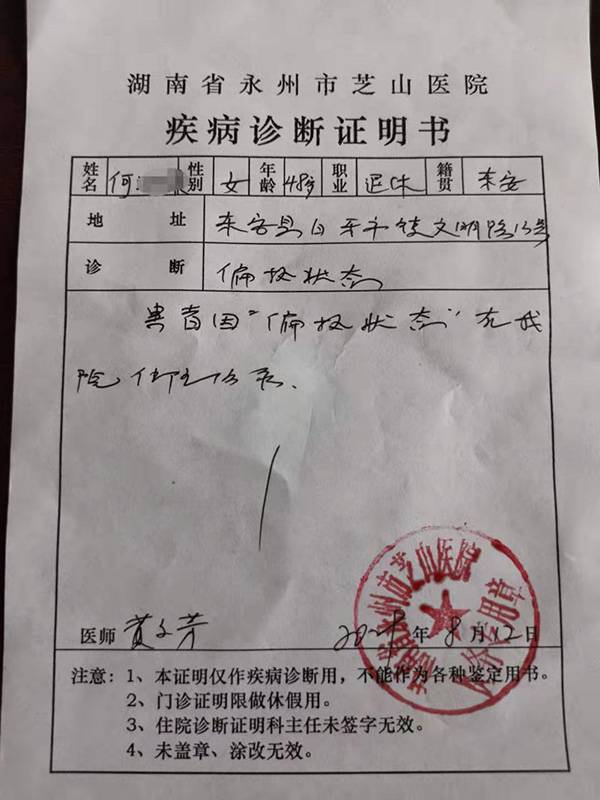 湖南省永州市芝山医院
疾病诊断证明书
姓名 何 性别 女 年龄 48岁 职业 退休 籍贯 东安
地址 东安县白牙市镇文明路15号
诊断 偏执状态
患者因“偏执状态”在我
院住
医师 黄 芳 年8月12日
永州市芝山医院
专用章
注意：1、本证明仅作疾病诊断用，不能作为各种鉴定用书。
2、门诊证明限做休假用。
3、住院诊断证明科主任未签字无效。
4、未盖章、涂改无效。